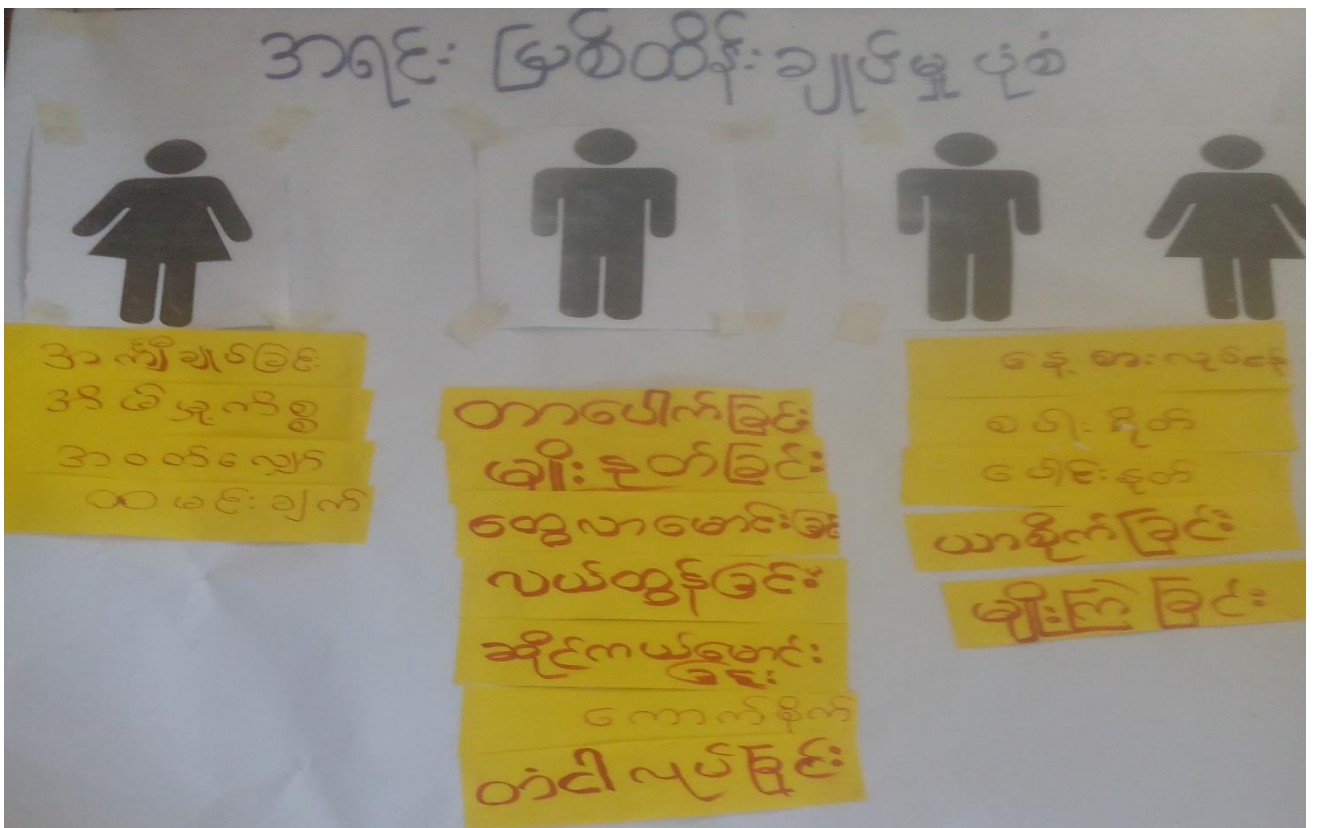 အရင်း မြစ်ထိန်းချုပ်မှု ပုံစံ
အင်္ကျီချုပ်ခြင်း
အိမ်မှုကိစ္စ
အဝတ်လျှော်
ထမင်းချက်
တာပေါက်ခြင်း
မျိုးနုတ်ခြင်း
ထွေလာမောင်းခြင်း
လယ်ထွန်ခြင်း
ဆိုင်ကယ်မောင်း
ခြင်း
ကောက်စိုက်
တံငါလုပ်ခြင်း
နေ့စားလုပ်ငန်း
စပါးရိတ်
ပေါင်းနုတ်
ယာစိုက်ခြင်း
မျိုးကြဲခြင်း